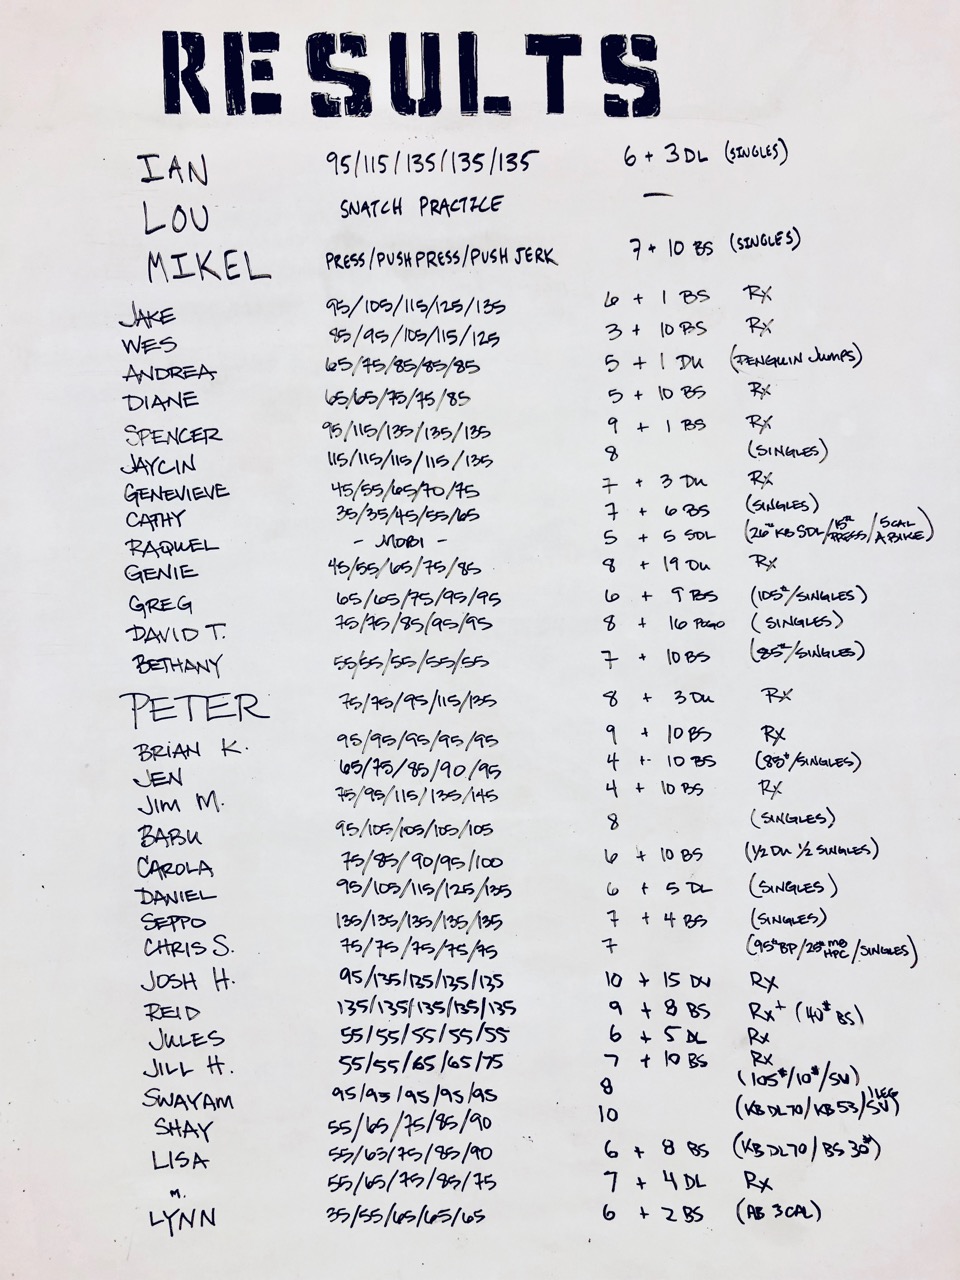 RESULTS
IAN 95/115/135/135/135 6 + 3 DL (SINGLES)
LOU SNATCH PRACTICE —
MIKEL PRESS/PUSH PRESS/PUSH JERK 7 + 10 BS (SINGLES)
JAKE 95/105/115/125/135 6 + 1 BS Rx
WES 85/95/105/115/125 3 + 10 BS Rx
ANDREA 65/75/85/85/85 5 + 1 DU (PENGUIN JUMPS)
DIANE 65/65/75/75/85 5 + 10 BS Rx
SPENCER 95/115/135/135/135 9 + 1 BS Rx
JAYCIN 115/115/115/115/135 8 (SINGLES)
GENEVIEVE 45/55/65/70/75 7 + 3 DU Rx
CATHY 35/35/45/55/65 7 + 6 BS (SINGLES)
RAQUEL - MOBI - 5 + 5 SDL (26# KB SDL/15# PRESS/5 CAL A BIKE)
GENIE 45/55/65/75/85 8 + 19 DU Rx
GREG 65/65/75/95/95 6 + 9 BS (105#/SINGLES)
DAVID T. 75/75/85/95/95 8 + 16 POGO (SINGLES)
BETHANY 55/55/55/55/55 7 + 10 BS (85#/SINGLES)
PETER 75/75/95/115/135 8 + 3 DU Rx
BRIAN K. 95/95/95/95/95 9 + 10 BS Rx
JEN 65/75/85/90/95 4 + 10 BS (85#/SINGLES)
JIM M. 75/95/115/135/145 4 + 10 BS Rx
BABU 95/105/105/105/105 8 (SINGLES)
CAROLA 75/85/90/95/100 6 + 10 BS (1/2 DU 1/2 SINGLES)
DANIEL 95/105/115/125/135 6 + 5 DL (SINGLES)
SEPPO 135/135/135/135/135 7 + 4 BS (SINGLES)
CHRIS S. 75/75/75/75/75 7 (95# BP/25# MB HPC/SINGLES)
JOSH H. 95/135/135/135/135 10 + 15 DU Rx
REID 135/135/135/135/135 9 + 8 BS Rx+ (40# BS)
JULES 55/55/55/55/55 6 + 5 DL Rx
JILL H. 55/55/65/65/75 7 + 10 BS Rx
SWAYAM 95/95/95/95/95 8 (105#/10#/SU)
SHAY 55/65/75/85/90 10 (KB DL 70/KB 53/1 LEG SU)
LISA 55/65/75/85/90 6 + 8 BS (KB DL 70/BS 30#)
55/65/75/85/75 7 + 4 DL Rx
M. LYNN 35/55/65/65/65 6 + 2 BS (AB 3 CAL)